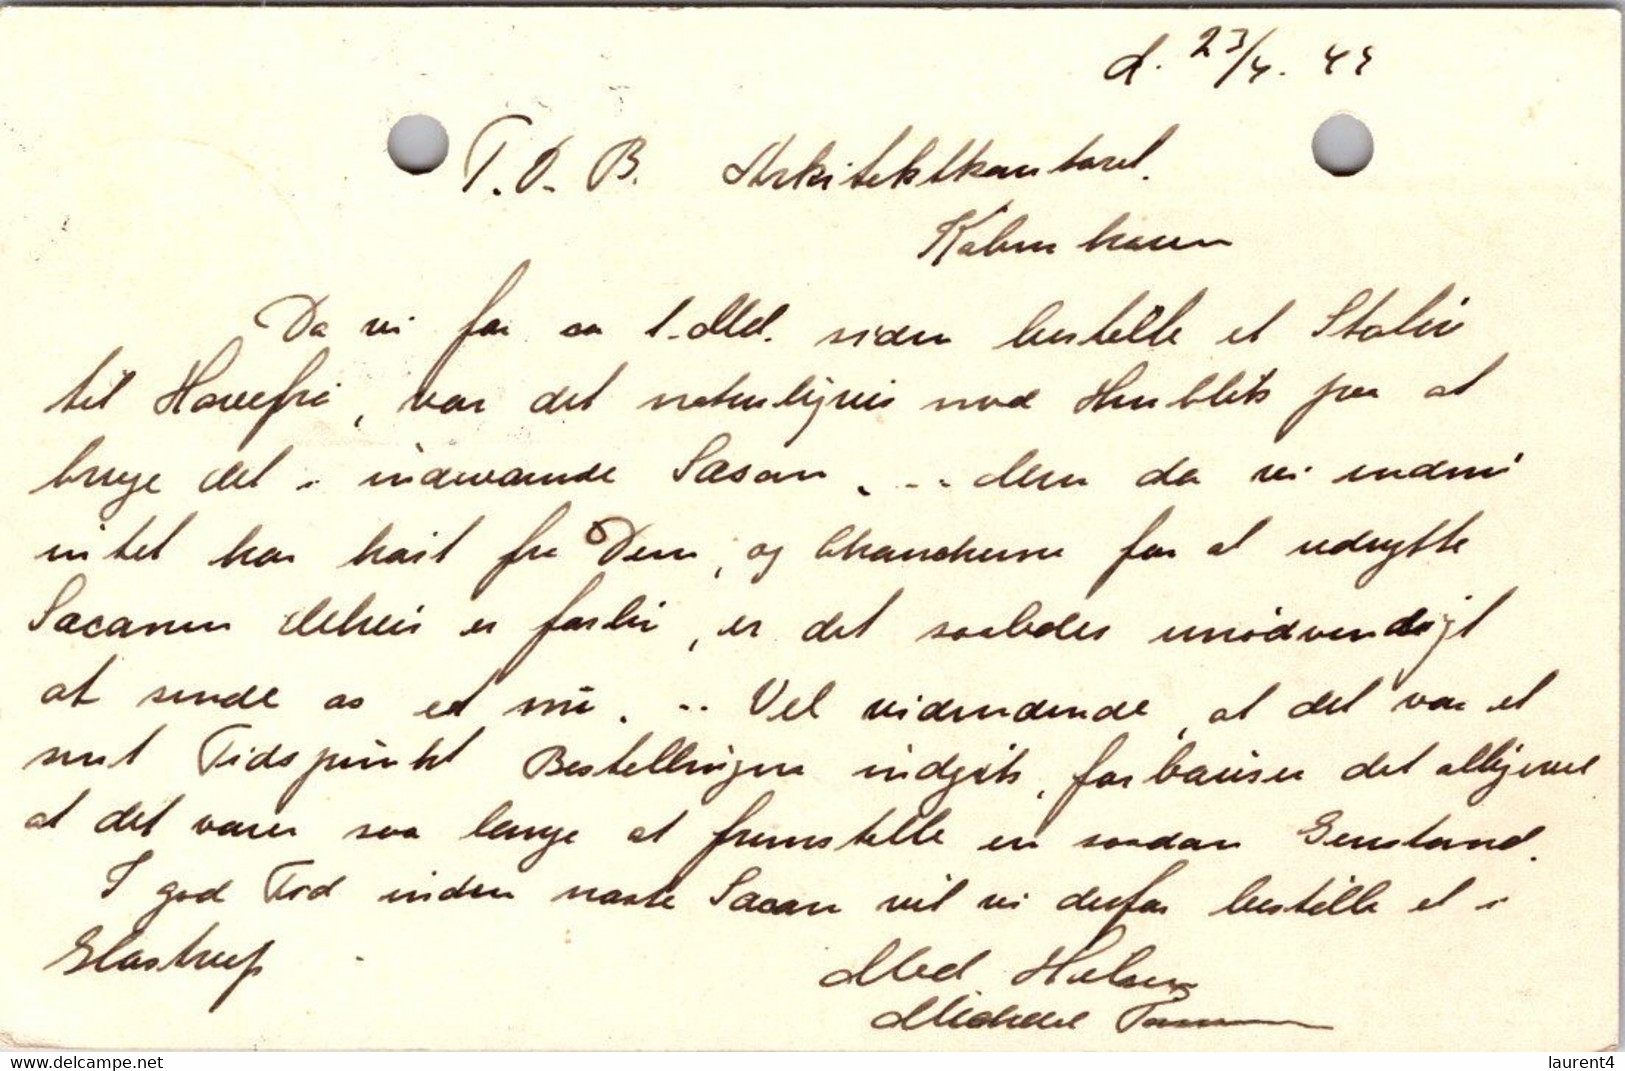 d. 23/4. 44
T.O.B. Arkitektkontoret.
København
Da vi for ca 1. Md. siden bestilte et Stativ
til Havefrø, var det naturligvis med Henblik paa at
bruge det i indeværende Sæson. -- Men da vi endnu
intet har hørt fra Dem, og Chancerne for at udnytte
Sæsonen delvis er forbi, er det saaledes unødvendigt
at sende os et nu. -- Vel vidende, at det var et
sent Tidspunkt Bestillingen indgik, forbauser det alligevel
at det varer saa længe at fremstille en saadan Genstand.
I god Tid inden næste Sæson vil vi derfor bestille et i
Glostrup
Med Hilsen
laurent4
www.delcampe.net